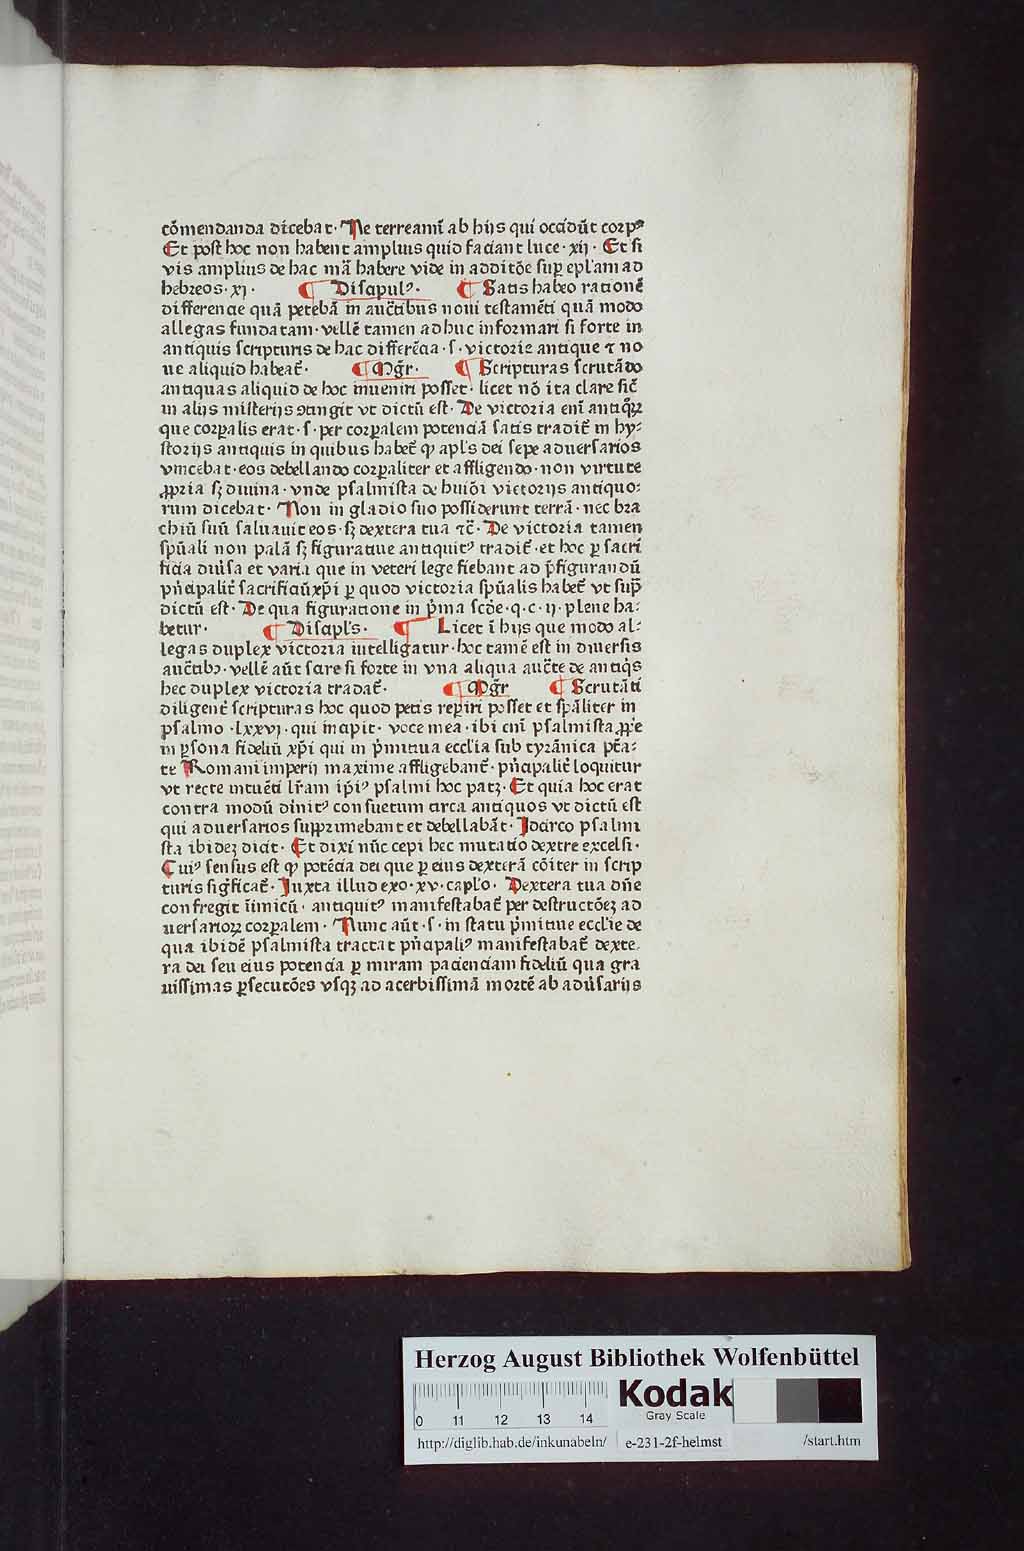 cōmendanda dicebat· Ne terreamī ab hijs qui occidūt corpꝰ
Et post hoc non habent amplius quid faciant luce·xij· Et si
vis amplius de hac mā habere vide in additōe suꝑ epl'am ad
hebreos·xj· ¶ Discipulꝰ· ¶ Satis habeo rationē
differencie quā petebā in auctibus noui testamēti quā modo
allegas fundatam·vellē tamen adhuc informari si forte in
antiquis scripturis de hac differēcia·s·victorie antique ⁊ no
ue aliquid habeat̄· ¶ Mgr̄· ¶ Scripturas scrutādo
antiquas aliquid de hoc inueniri posset·licet nō ita clare sic̄
in alijs misterijs ꝯtingit vt dictū est· De victoria enī antiqꝝ
que corꝑalis erat·s·per corꝑalem potenciā satis tradit̄ in hy⸗
storijs antiquis in quibus habet̄ ꝙ apl's dei sepe aduersarios
vincebat·eos debellando corꝑaliter et affligendo·non virtute
ꝓpria sꝫ diuina·vnde psalmista de huiōi victorijs antiquo⸗
rum dicebat· Non in gladio suo possiderunt terrā·nec bra
chiū suū saluauit eos·sꝫ dextera tua ⁊c̄· De victoria tamen
spūali non palā sꝫ figuratiue antiquitꝰ tradit̄·et hoc ꝑ sacri
ficia diūsa et varia que in veteri lege fiebant ad p̄figurandū
pn̄cipalit̄ sacrificiū xp̄i ꝑ quod victoria spūalis habet̄ vt sup̄
dictū est· De qua figuratione in p̄ma scd̄e·q·c·ij·plene ha⸗
betur· ¶ Discipl's· ¶ Licet ī hijs que modo al⸗
legas duplex victoria intelligatur·hoc tamē est in diuersis
auctibꝫ·vellē aūt scire si forte in vna aliqua aucte de antiq̄s
hec duplex victoria tradat̄· ¶ Mgr̄ ¶ Scrutāti
diligent̄ scripturas hoc quod petis reꝑiri posset et spāliter in
psalmo·lxxvj·qui incipit·voce mea·ibi enī psalmista ꝓprie
in ꝑsona fideliū xp̄i qui in p̄mitiua eccl'ia sub tyrānica ptā⸗
te Romani imperij maxime affligebant̄·pn̄cipalit̄ loquitur
vt recte intuēti lr̄am ip̄iꝰ psalmi hoc patꝫ· Et quia hoc erat
contra modū diuītꝰ consuetum circa antiquos vt dictū est
qui aduersarios supprimebant et debellabāt· Idcirco psalmi
sta ibidez dicit· Et dixi nūc cepi hec mutatio dextre excelsi·
Cuiꝰ sensus est ꝙ potēcia dei que ꝑ eius dexterā cōiter in scrip
turis sig̅ficat̄· Iuxta illud exo·xv·capl'o· Dextera tua dn̄e
confregit īimicū· antiquitꝰ manifestabat̄ per destructōeꝫ ad
uersarioꝝ corꝑalem· Nunc aūt·s·in statu p̄mitiue eccl'ie de
qua ibidē psalmista tractat pn̄cipaliꝰ manifestabat̄ dexte⸗
ra dei seu eius potencia ꝑ miram pacienciam fideliū qua gra
uissimas ꝑsecutōes vsqꝫ ad acerbissimā mortē ab adūsarijs
Herzog August Bibliothek Wolfenbüttel
0 11 12 13 14
Kodak
Gray Scale
http://diglib.hab.de/inkunabeln/ e-231-2f-helmst /start.htm